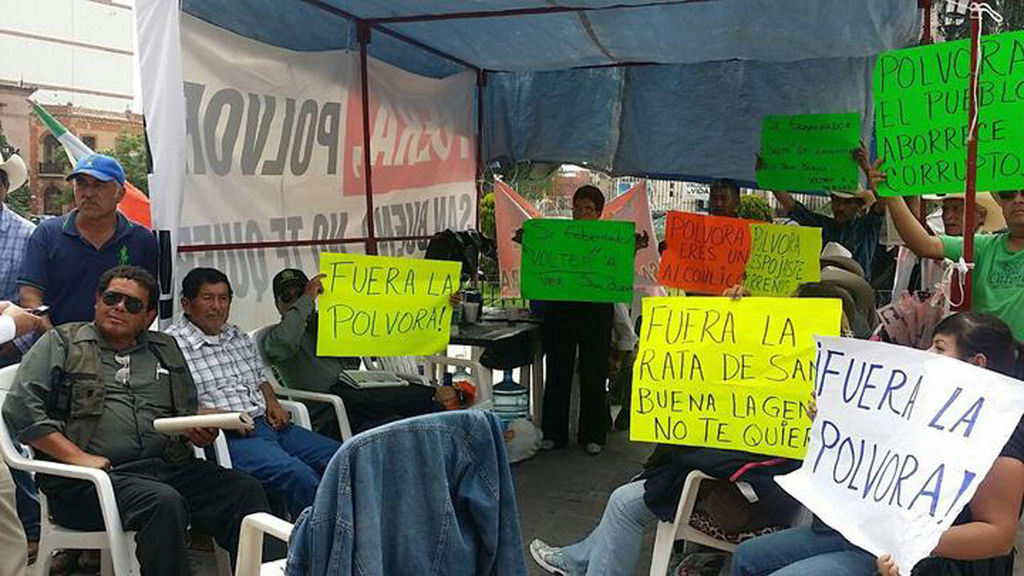 FUERA, POLVOR
SAN BUENO NO TE QUIE
FUERA LA
POLVORA!
Sr Gobernador
VOLTEE A
VER
POLVORA
ERES UN
ALCOHOLICO
POLVORA
DESPOJASTE
Sr GOBERNADOR
POLVORA
EL PUEBLO
ABORRECE
CORRUPTO
FUERA LA
RATA DE SAN
BUENA LA GEN
NO TE QUIER
¡FUERA LA
POLVORA!